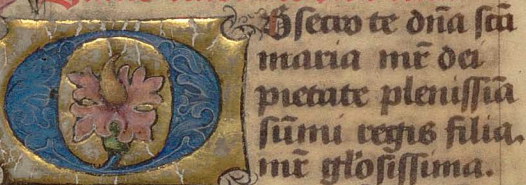 Obsecro te dña sctã
maria mr̃ dei
pietate plenissiã
sũmi regis filia.
mr̃ glõsissima.